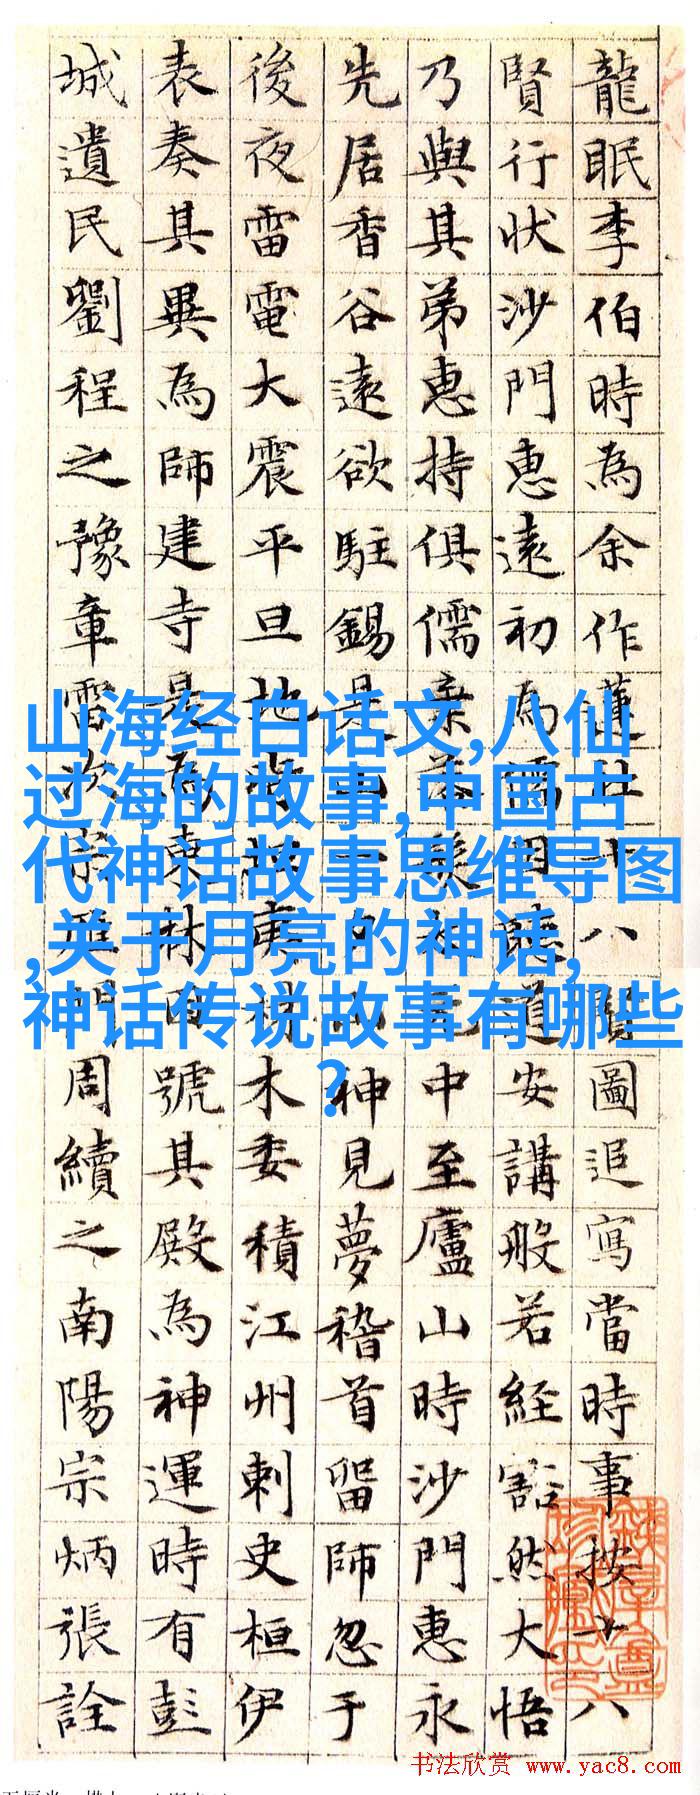 龍眠李伯時為余作蓮社十八賢圖追寫當時事按十八
賢行狀沙門惠遠初為儒因聽道安講般若經豁然大悟
乃與其弟惠持俱儒棄落髮太元中至廬山時沙門惠永
先居香谷遠欲駐錫是山一夕山神見夢稽首留師忽于
後夜雷電大震平旦地皆材木委積江州刺史桓伊
表奏其異為師建寺是為東林因號其殿為神運時有彭
城遺民劉程之豫章雷次宗雁門周續之南陽宗炳張詮
山海经白话文,八仙
过海的故事,中国古
代神话故事思维导图
,关于月亮的神话,
神话传说故事有哪些
?
书法欣赏 www.yac8.com